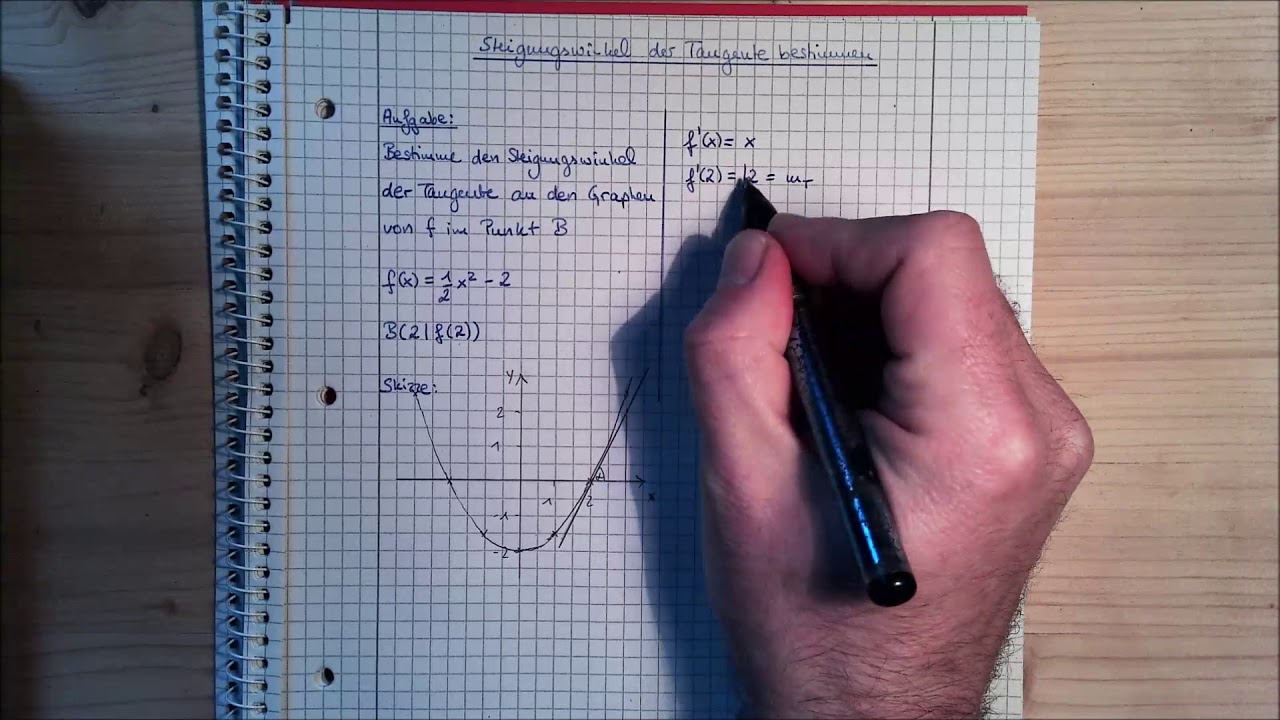 Steigungswinkel der Tangente bestimmen
Aufgabe:
Bestimme den Steigungswinkel
der Tangente an den Graphen
von f im Punkt B
f(x) = 1/2 x² - 2
B(2|f(2))
Skizze:
y
2
1
-1
-2
1
2
x
f'(x) = x
f'(2) = 2 = m_T